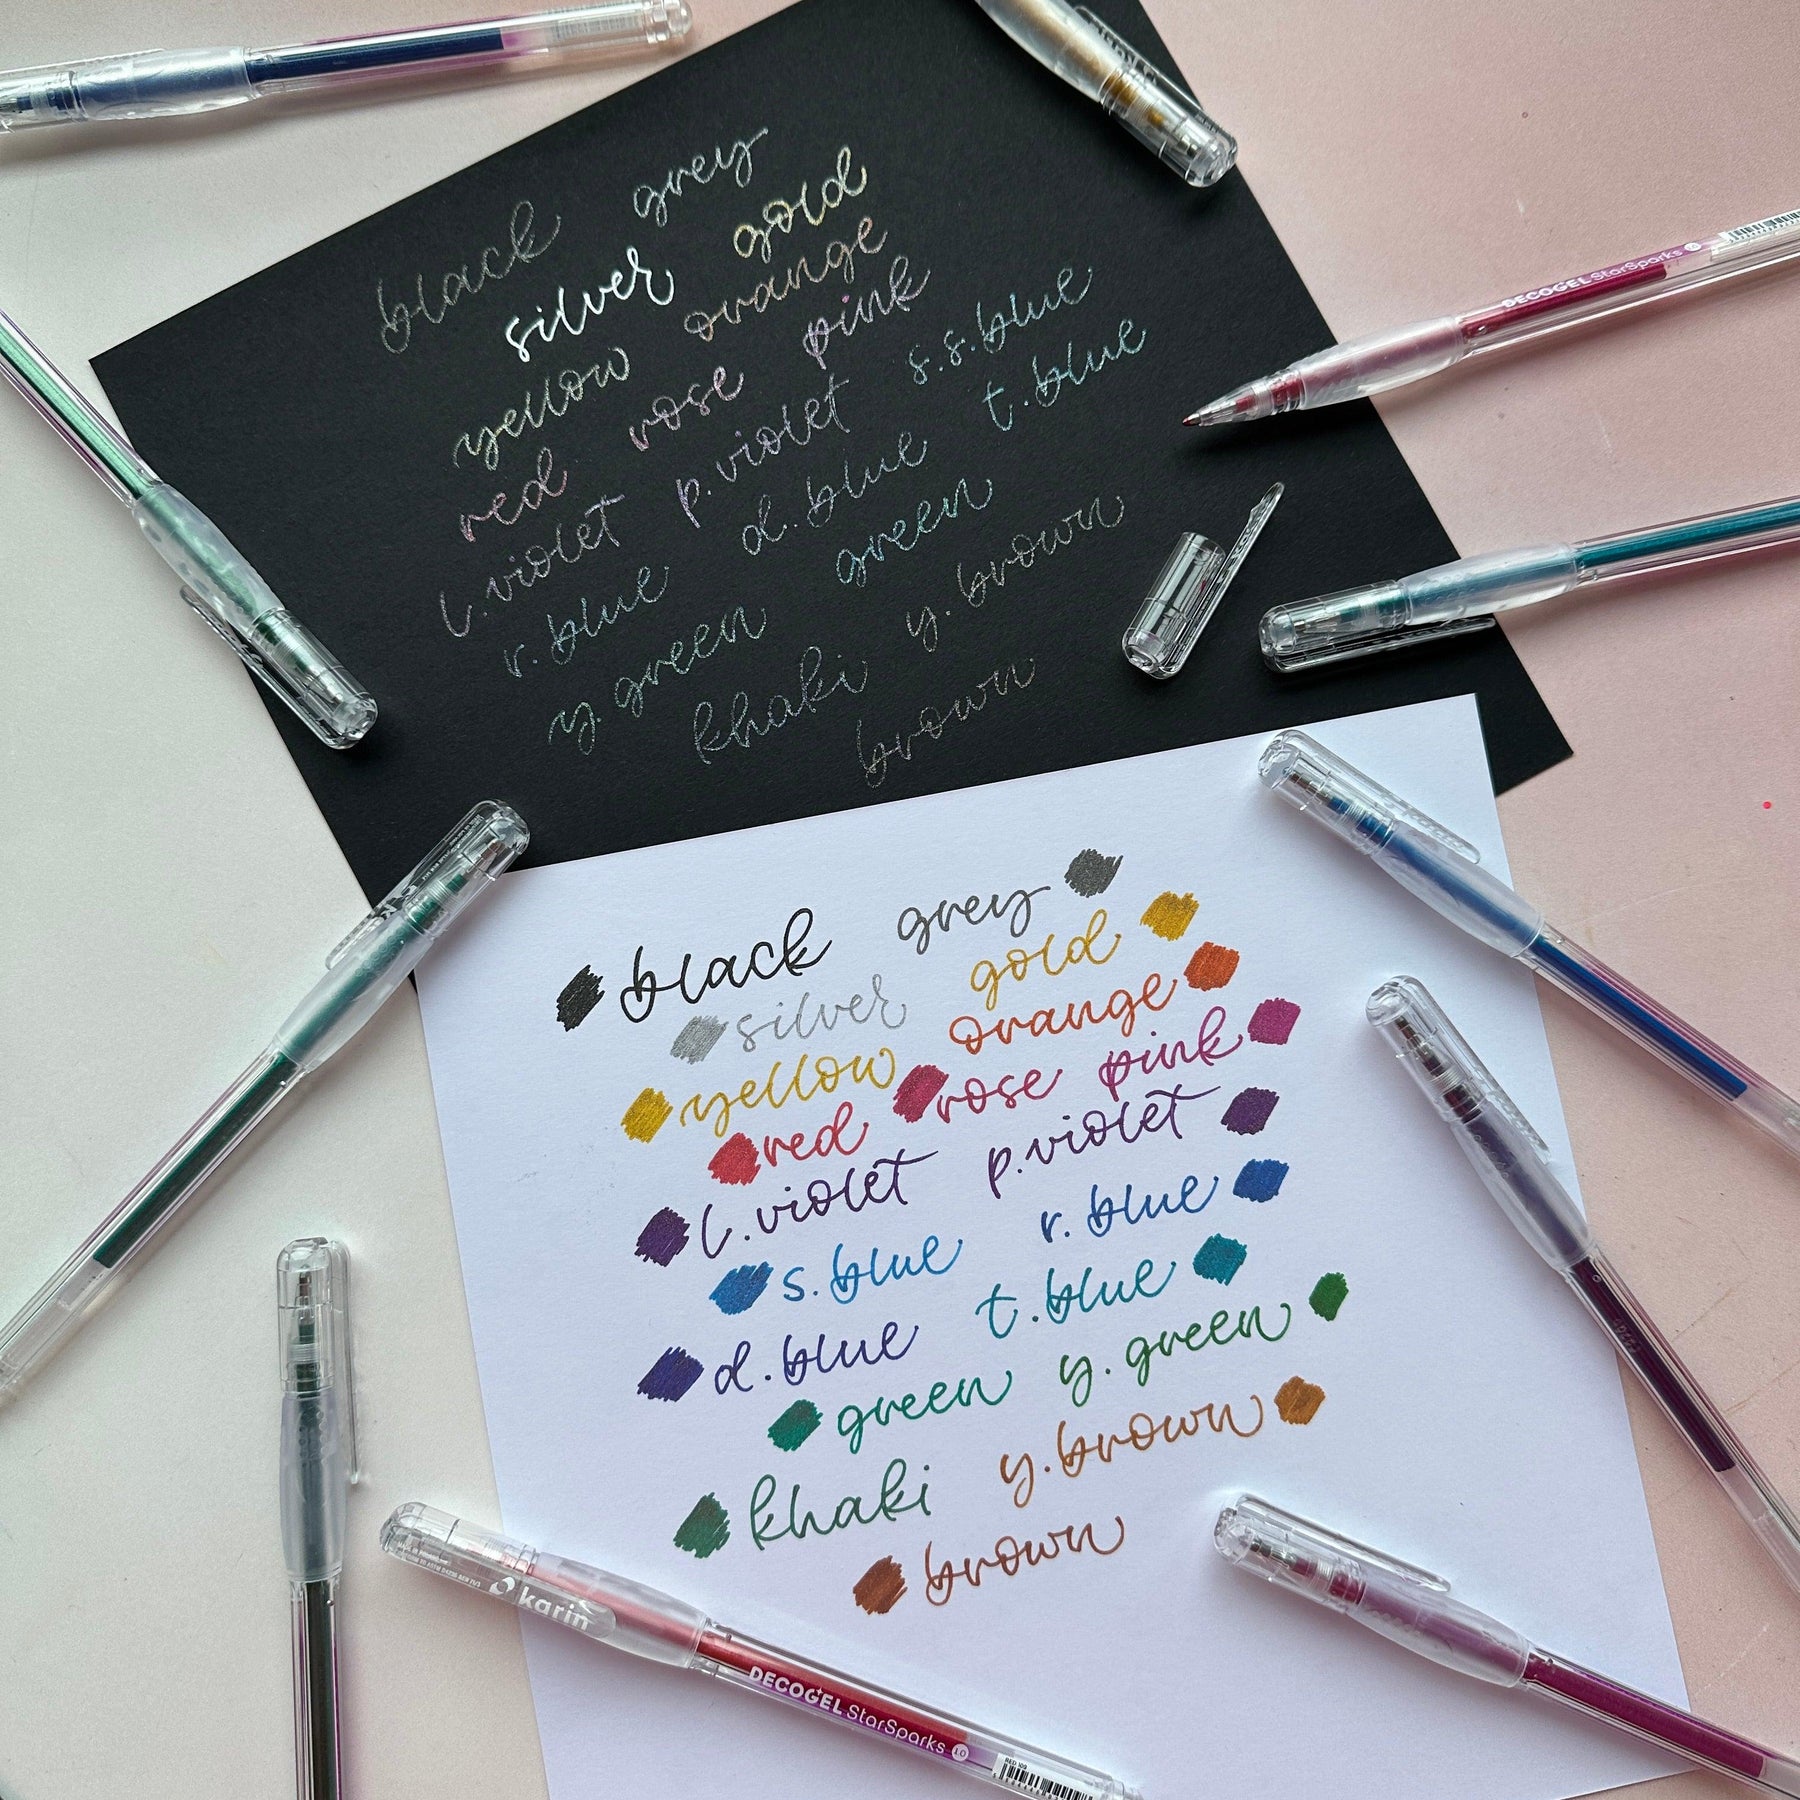 black grey
silver gold
yellow orange
red rose pink
l.violet p.violet s.s.blue
r.blue d.blue t.blue
y.green green
khaki y.brown
brown
black grey
silver gold
yellow orange
red rose pink
l.violet p.violet
s.blue r.blue
d.blue t.blue
green y.green
khaki y.brown
brown
DECOGEL StarSparks
karin
DECOGEL StarSparks 1.0
RED 109